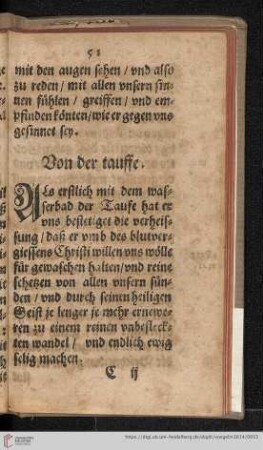 51
mit den augen sehen / vnd also
zu reden / mit allen vnsern sin-
nen fühlen / greiffen / vnd em-
pfinden könten / wie er gegen vns
gesinnet sey.
Von der tauffe.
Als erstlich mit dem was-
serbad der Taufe hat er
vns bestetiget die verheis-
sung / daß er vmb des blutver-
giessens Christi willen vns wölle
für gewaschen halten / vnd reine
schetzen von allen vnsern sün-
den / vnd durch seinen heiligen
Geist je lenger je mehr ernewe-
ren zu einem reinen vnbefleck-
ten wandel / vnd endlich ewig
selig machen.
C ij